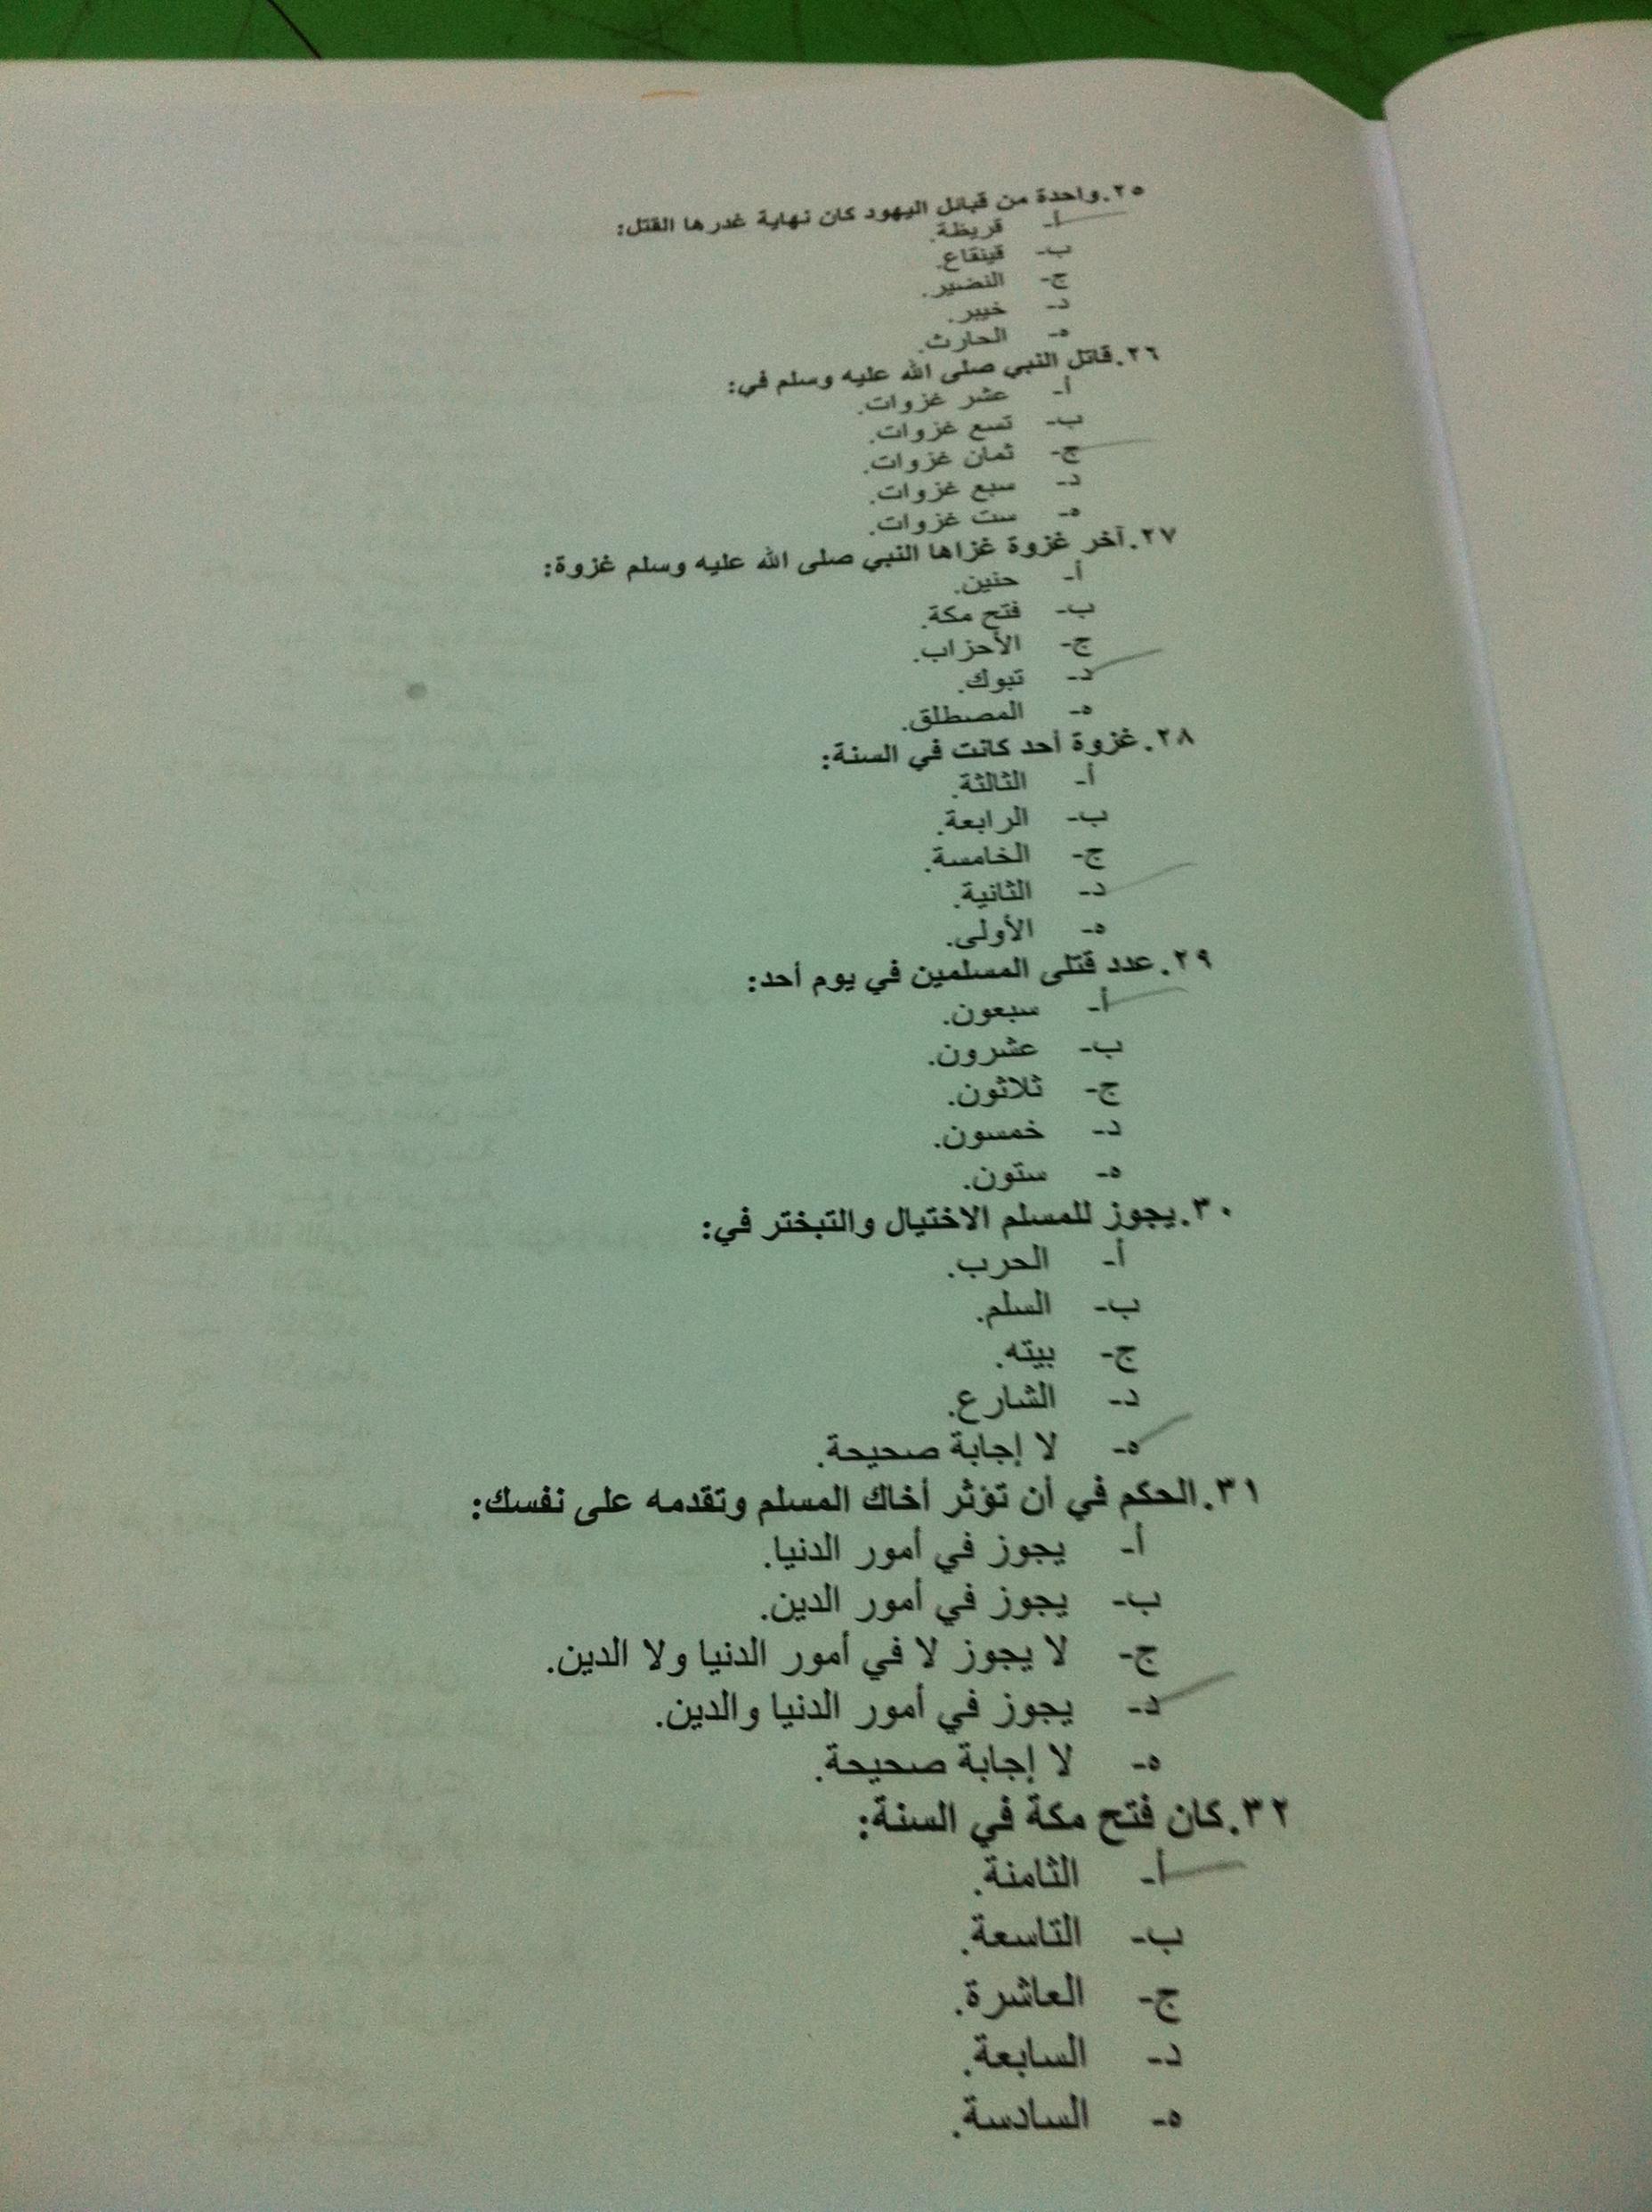 ٢٥.واحدة من قبائل اليهود كان نهاية غدرها القتل:
أ- قريظة.
ب- قينقاع.
ج- النضير.
د- خيبر.
ه- الحارث.
٢٦.قاتل النبي صلى الله عليه وسلم في:
أ- عشر غزوات.
ب- تسع غزوات.
ج- ثمان غزوات.
د- سبع غزوات.
ه- ست غزوات.
٢٧.آخر غزوة غزاها النبي صلى الله عليه وسلم غزوة:
أ- حنين.
ب- فتح مكة.
ج- الأحزاب.
د- تبوك.
ه- المصطلق.
٢٨.غزوة أحد كانت في السنة:
أ- الثالثة.
ب- الرابعة.
ج- الخامسة.
د- الثانية.
ه- الأولى.
٢٩.عدد قتلى المسلمين في يوم أحد:
أ- سبعون.
ب- عشرون.
ج- ثلاثون.
د- خمسون.
ه- ستون.
٣٠.يجوز للمسلم الاختيال والتبختر في:
أ- الحرب.
ب- السلم.
ج- بيته.
د- الشارع.
ه- لا إجابة صحيحة.
٣١.الحكم في أن تؤثر أخاك المسلم وتقدمه على نفسك:
أ- يجوز في أمور الدنيا.
ب- يجوز في أمور الدين.
ج- لا يجوز لا في أمور الدنيا ولا الدين.
د- يجوز في أمور الدنيا والدين.
ه- لا إجابة صحيحة.
٣٢.كان فتح مكة في السنة:
أ- الثامنة.
ب- التاسعة.
ج- العاشرة.
د- السابعة.
ه- السادسة.